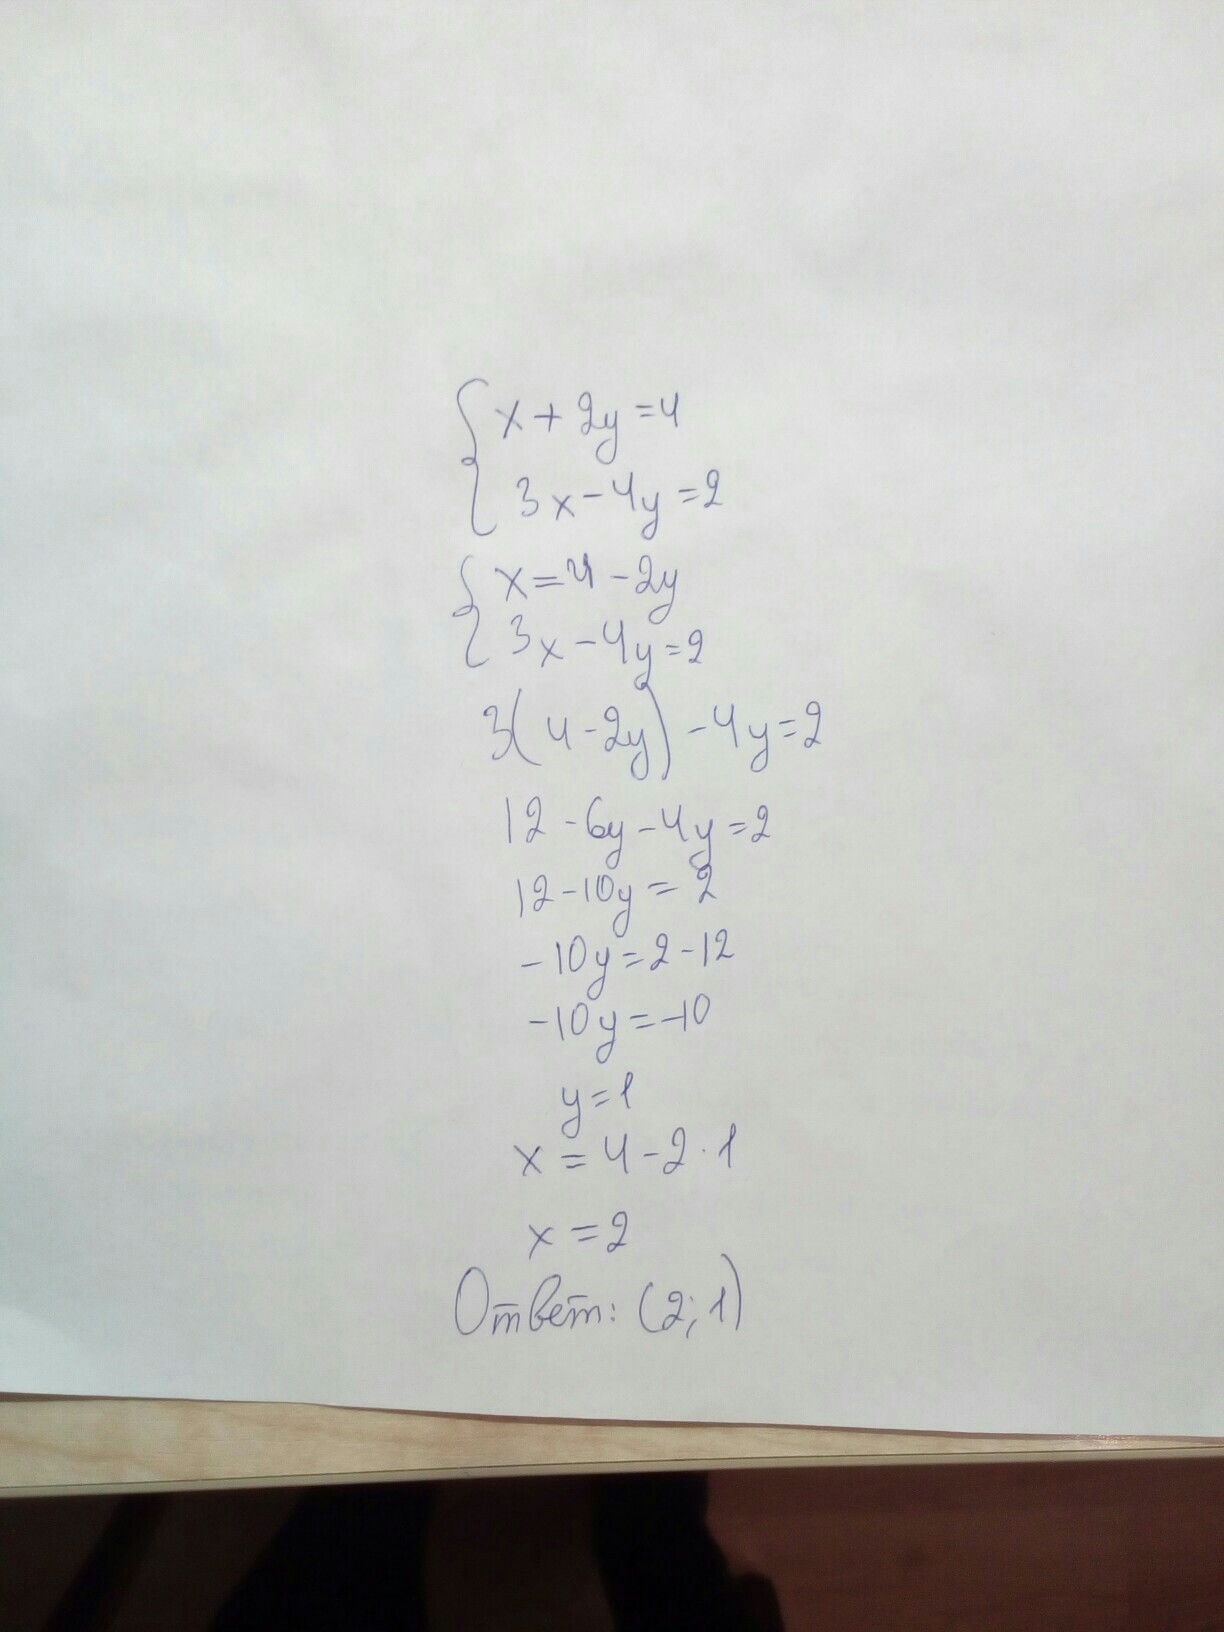 { x + 2y = 4
3x - 4y = 2
{ x = 4 - 2y
3x - 4y = 2
3(4 - 2y) - 4y = 2
12 - 6y - 4y = 2
12 - 10y = 2
-10y = 2 - 12
-10y = -10
y = 1
x = 4 - 2 · 1
x = 2
Ответ: (2; 1)